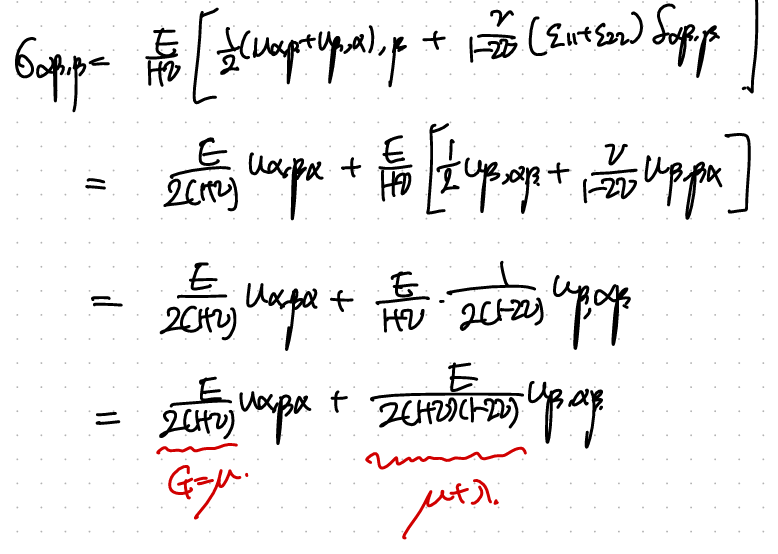 σαβ,β = E/(1+ν) [ 1/2 (uα,β + uβ,α),β + ν/(1-2ν) (ε11+ε22) δαβ,β ]
= E/(2(1+ν)) uα,βα + E/(1+ν) [ 1/2 uβ,αβ + ν/(1-2ν) uβ,βα ]
= E/(2(1+ν)) uα,βα + E/(1+ν) · 1/(2(1-2ν)) uβ,αβ
= E/(2(1+ν)) uα,βα + E/(2(1+ν)(1-2ν)) uβ,αβ
G=μ. μ+λ.